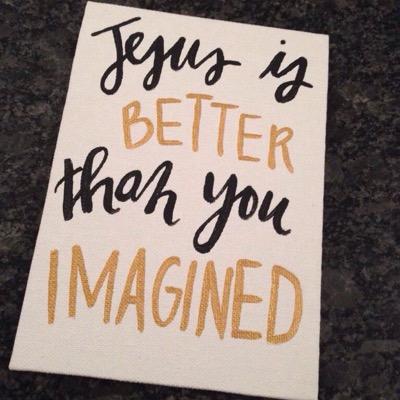 Jesus is
BETTER
than you
IMAGINED